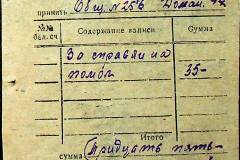 принять Общ. №256
№№ бал. сч. Содержание записи Сумма
За справки на 35-
Итого
сумма Тридцать пять